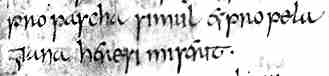 pro pascha simul & pro pela
giana heresi miserint.